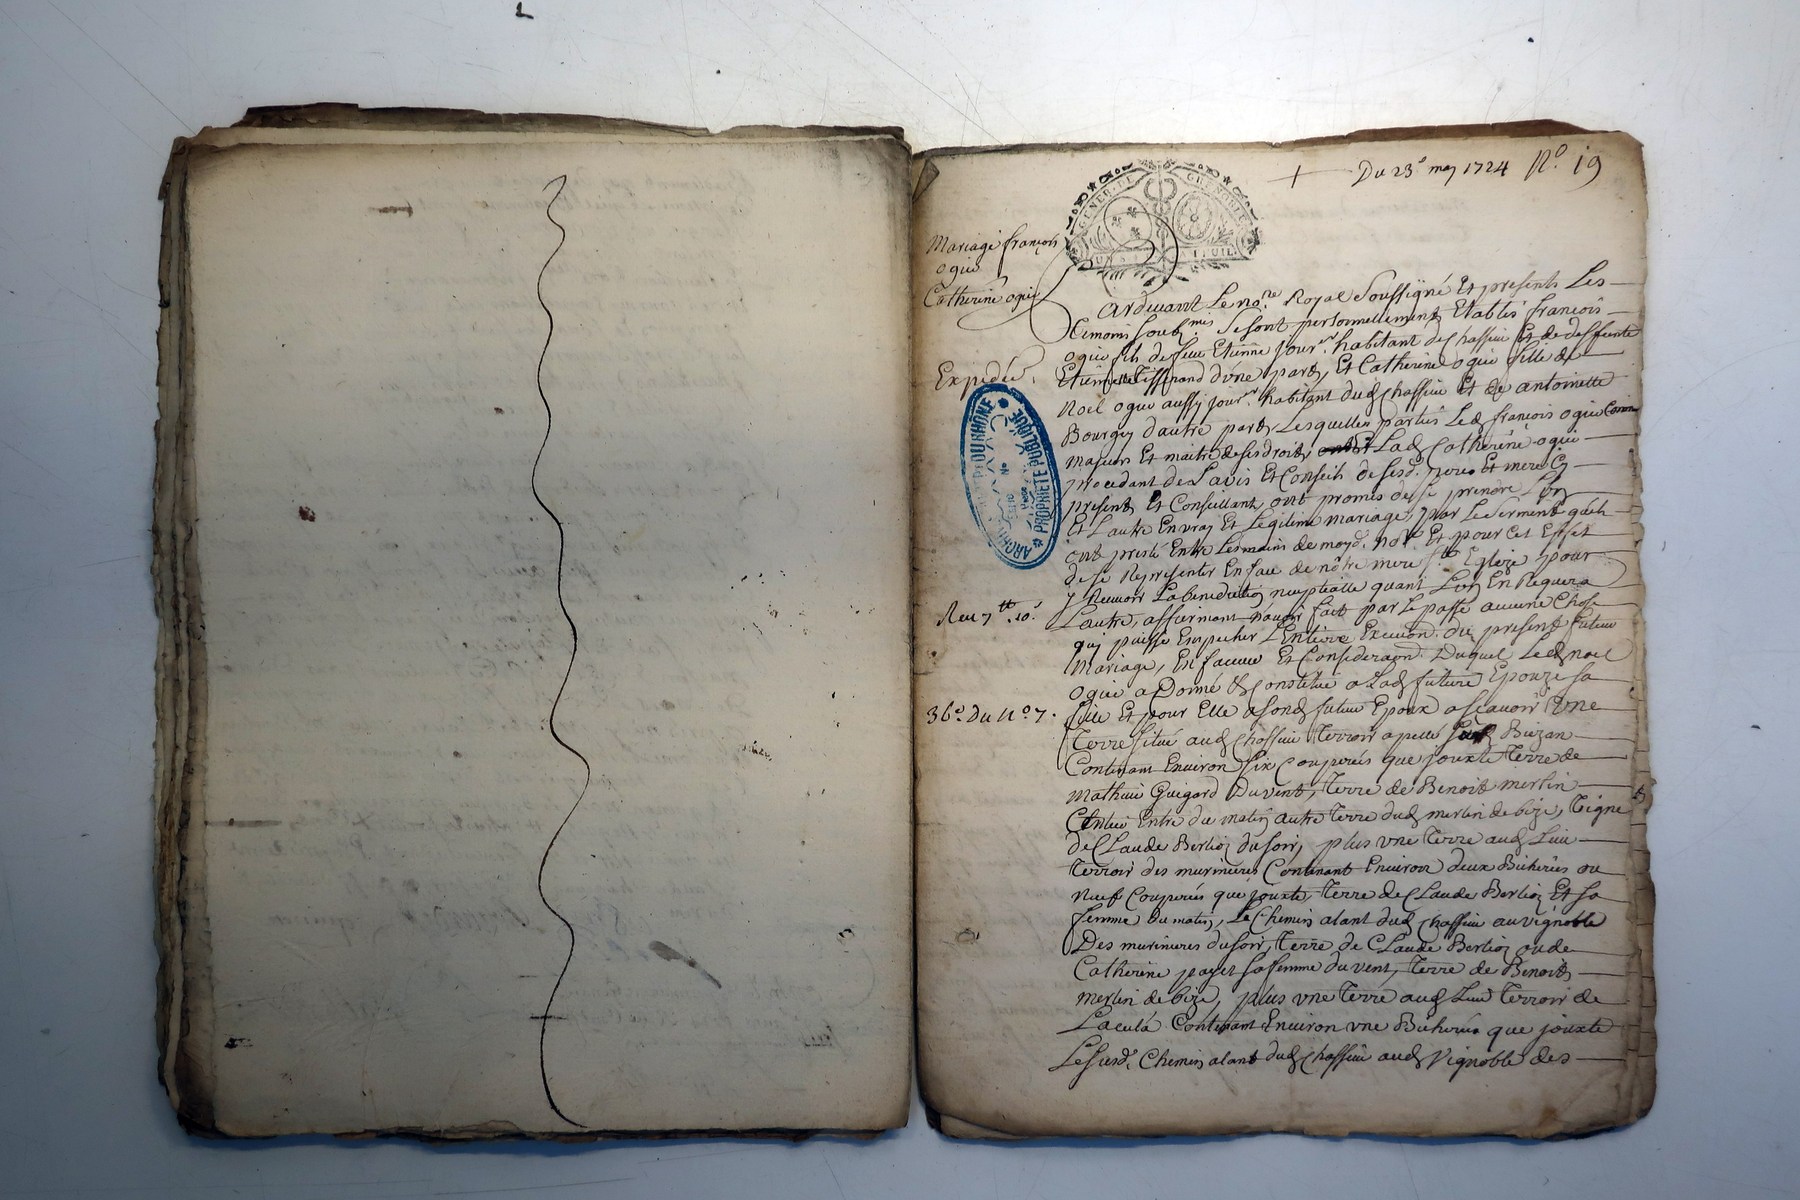 + Du 23e may 1724 No. 19
GENER. DE GRENOBLE
UN S. LA FEUIL.
Mariage françois
ogiu
Catherine ogiu
Expediée.
ARCHIVES DEP DU RHÔNE
PROPRIÉTÉ PUBLIQUE
Reçu 7tt 10s
36e. du No 7.
Pardevant Le nore. Royal Soussigné Et presents Les
temoins soubzmis Se sont personnellement Etablis françois
ogiu fils de feu Etienne jourer. habitant de chassiu Et de deffunte
Etiennette Tisserand d'vne part, Et Catherine ogiu fille de
Noel ogiu aussy jourer. habitant dud chassiu Et de antoinette
Bourgey d'autre part, Lesquelles parties Led françois ogiu Comme
majeur Et maitre de ses droits, Et Lad Catherine ogiu
procedant de L'avis Et Conseils de sesd. peres Et mere Cy
present Et Conseillant, ont promis de se prendre L'vn
Et L'autre En vray Et Legitime mariage, par Le Serment qu'ils
ont presté Entre Les mains de moyd. nore. Et pour cet Effet
de se Representer En face de nôtre mere Ste Eglize pour
y Recevoir La benediction nuptialle quant L'vn En Requera
L'autre, affirmant n'avoir fait par Le passé aucune Chose
quy puisse Empecher L'Entiere Execuon. du present futeur
Mariage, En faveur Et Consideraon. Duquel Led Noel
ogiu a Donné & Constitué a Lad future Epouze sa
fille Et pour Elle a sond futeur Epoux a sçavoir vne
Terre situé aud chassiu Terroir apellé Bizan
Contenant Environ six Couperées que jouxte Terre de
Mathieu Guigard Du vent, Terre de Benoit merlin
Entre du matin autre Terre dud merlin de bize, Vigne
de Claude Berlioz du soir, plus vne Terre aud Lieu
Terroir des murinieres Contenant Environ deux Bicherées ou
neuf Couperées que jouxte, Terre de Claude Berlioz Et sa
femme du matin, Le Chemin alant dud chassiu au vignoble
Des murinieres du soir, Terre de Claude Berlioz ou de
Catherine payet sa femme du vent, Terre de Benoit
merlin de bize, plus vne Terre aud Lieu Terroir de
Lacula Contenant Environ vne Bicherée que jouxte
Le susd. Chemin alant dud chassiu aud Vignoble des